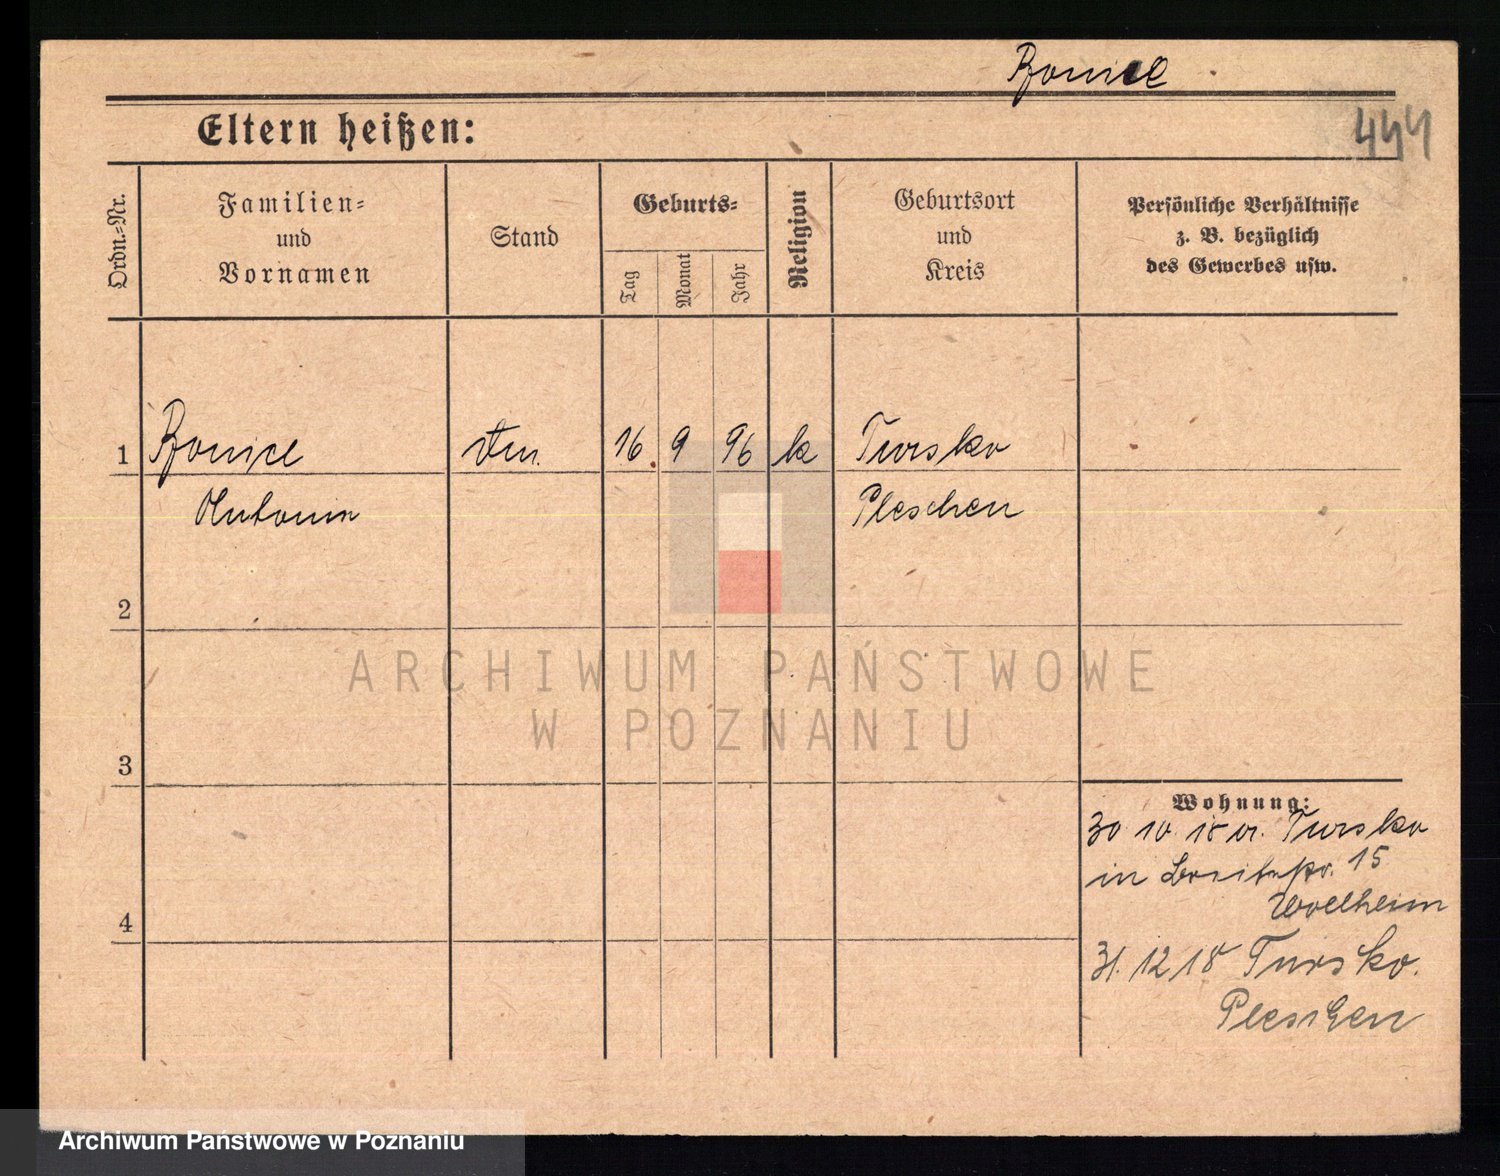 444
Eltern heißen:
Ordn.=Nr.
Familien=
und
Vornamen
Stand
Geburts=
Tag
Monat
Jahr
Religion
Geburtsort
und
Kreis
Persönliche Verhältnisse
z. B. bezüglich
des Gewerbes usw.
1
16 9 96 k Tursko
Antonin
Pleschen
2
3
4
Wohnung:
30 10 18 v. Tursko
in 15
Wollheim
31. 12 18 Tursko.
Pleschen
ARCHIWUM PAŃSTWOWE
W POZNANIU
Archiwum Państwowe w Poznaniu